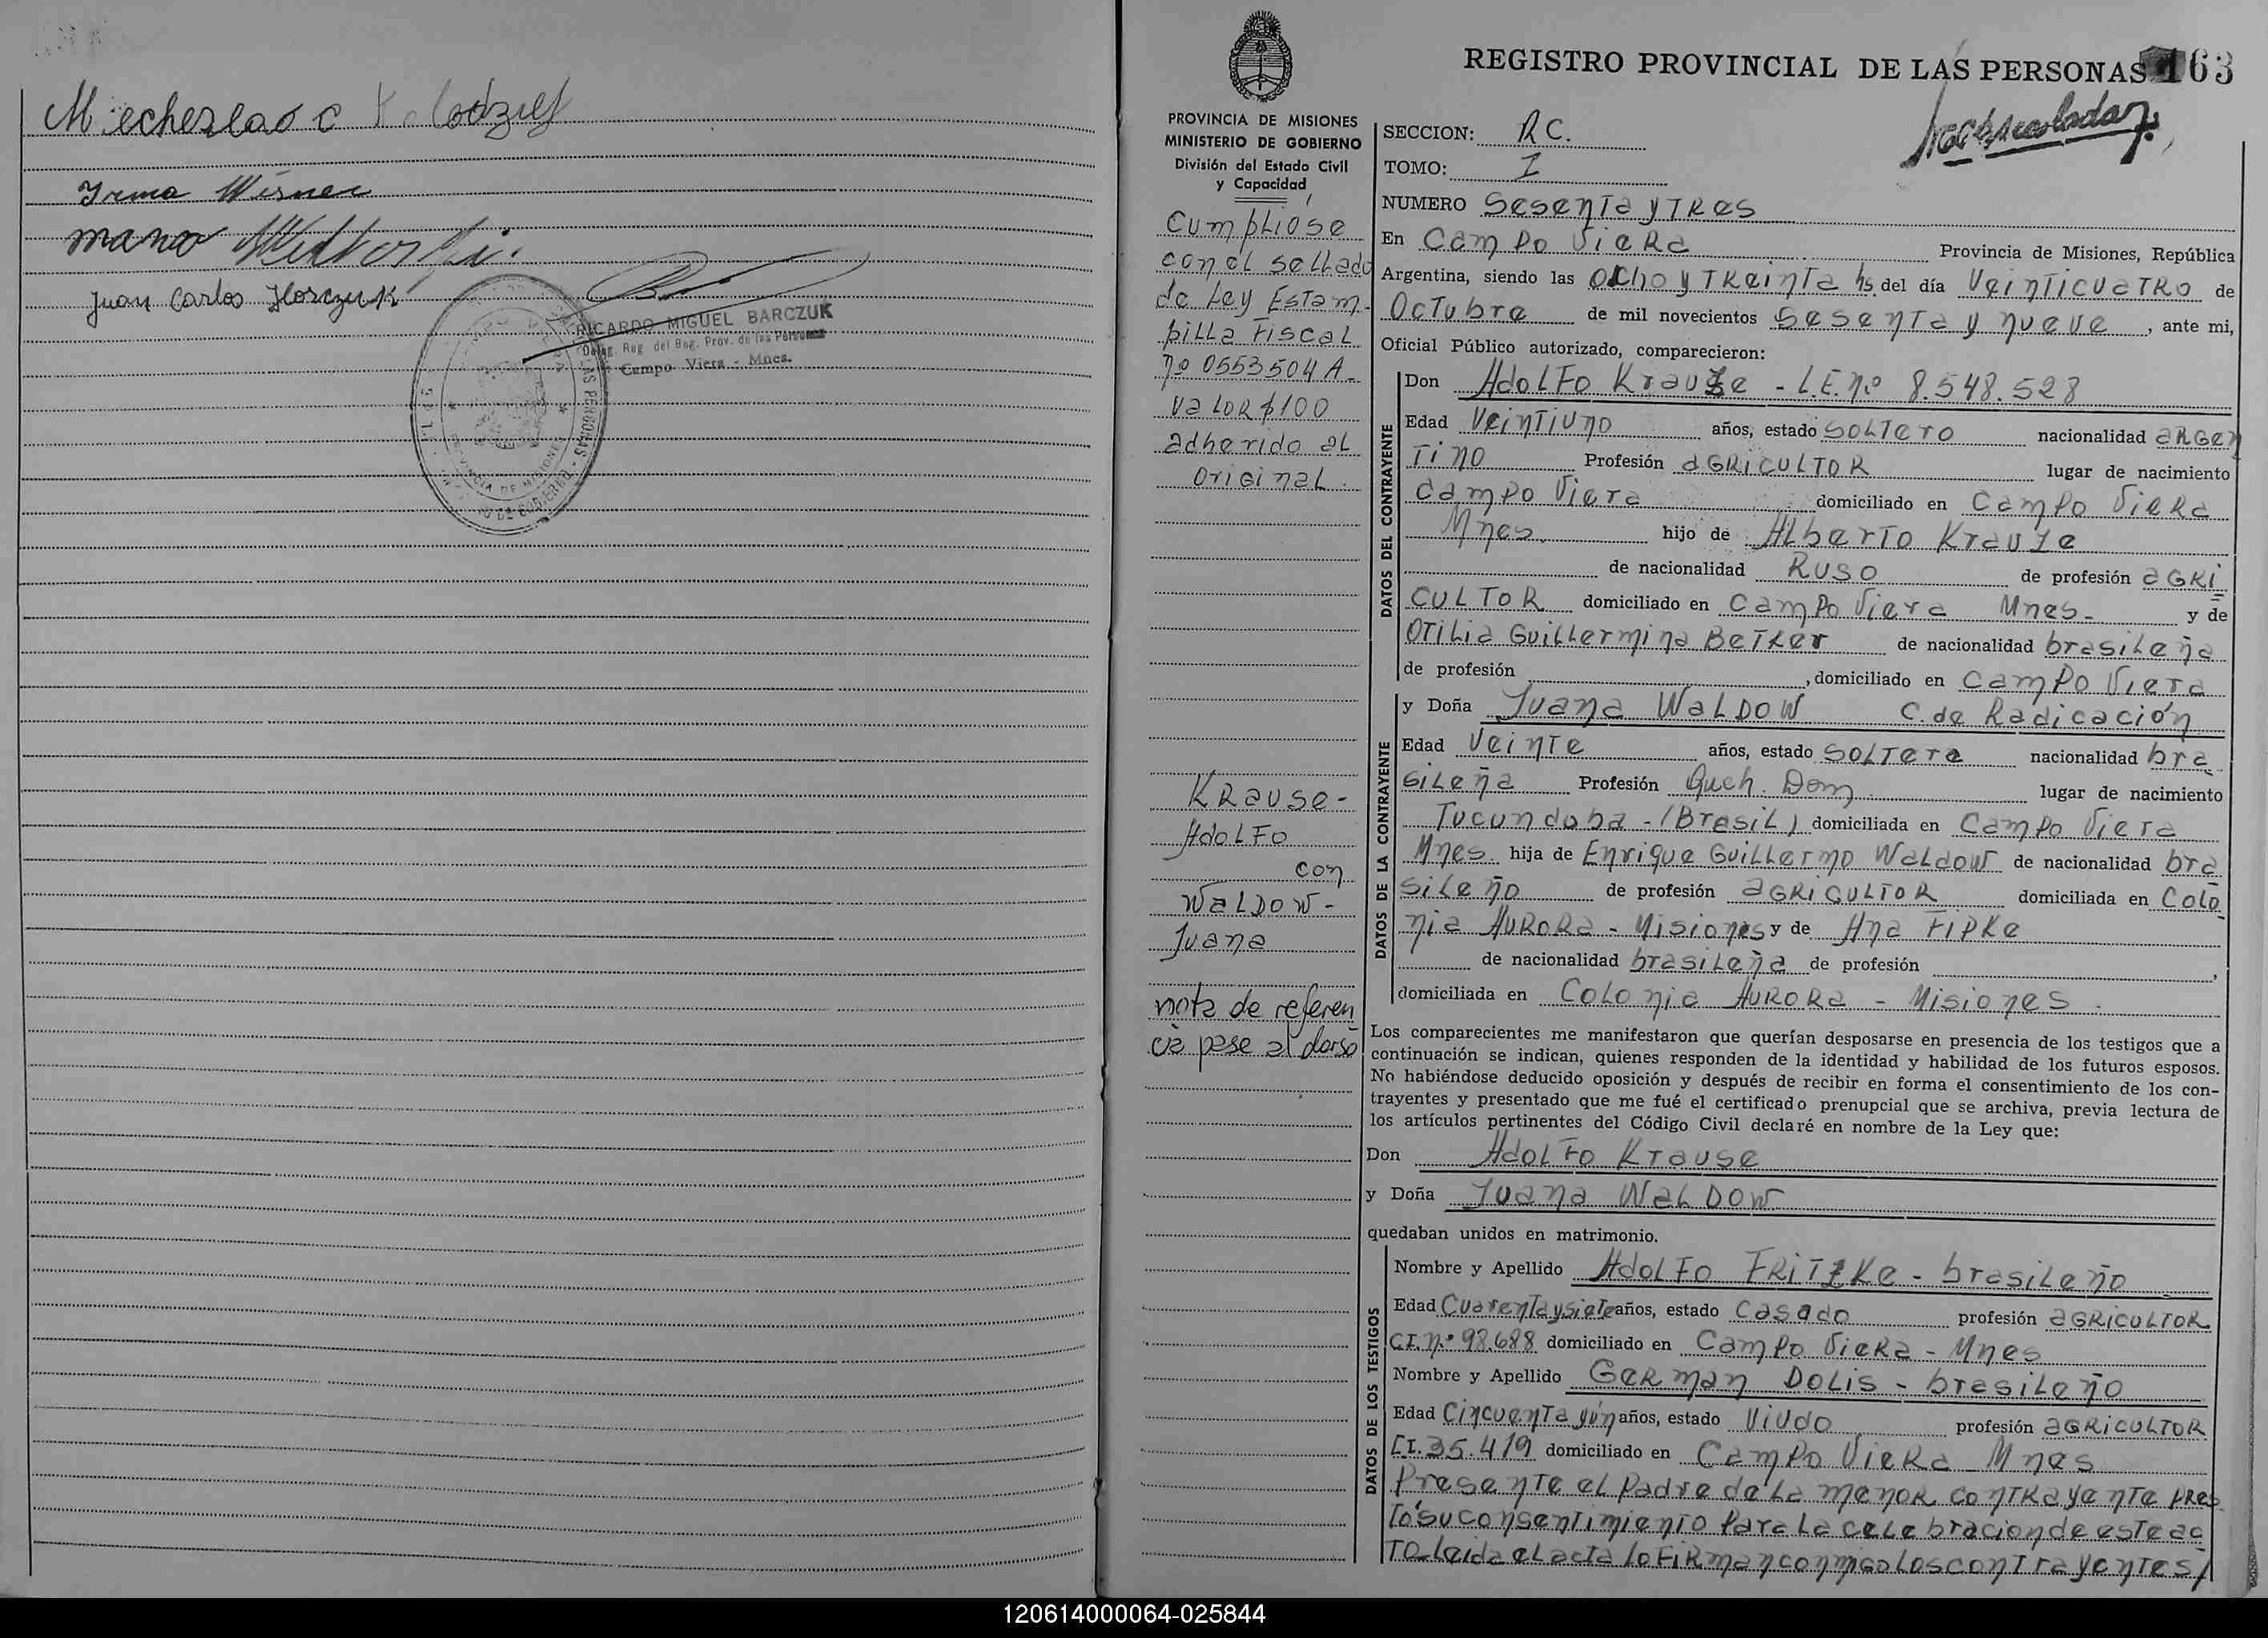 Miecheslao C Kolodziej
Irma Wisner
Juan Carlos
RICARDO MIGUEL BARCZUK
Deleg. Reg. del Reg. Prov. de las Personas
Campo Viera - Mnes.
REGISTRO PROVINCIAL DE LAS PERSONAS 163
PROVINCIA DE MISIONES
MINISTERIO DE GOBIERNO
División del Estado Civil
y Capacidad
Cumplióse
con el sellado
de Ley Estam-
pilla Fiscal
nº 0553504 A-
Valor $ 100
adherido al
original.
Krause-
Adolfo
con
Waldow-
Juana
nota de referen
cia pase al dorso
SECCION: RC.
TOMO: I
NUMERO Sesenta y Tres
En Campo Viera Provincia de Misiones, República
Argentina, siendo las Ocho y Treinta hs. del día Veinticuatro de
Octubre de mil novecientos Sesenta y nueve, ante mi,
Oficial Público autorizado, comparecieron:
DATOS DEL CONTRAYENTE
Don Adolfo Krause - L.E. nº 8.548.528
Edad Veintiuno años, estado Soltero nacionalidad argen
tino Profesión agricultor lugar de nacimiento
Campo Viera domiciliado en Campo Viera
Mnes. hijo de Alberto Krause
de nacionalidad Ruso de profesión agri
cultor domiciliado en Campo Viera Mnes- y de
Otilia Guillermina Betker de nacionalidad brasileña
de profesión , domiciliado en Campo Viera
DATOS DE LA CONTRAYENTE
y Doña Juana Waldow C. de Radicación
Edad Veinte años, estado Soltera nacionalidad bra
sileña Profesión Queh. Dom. lugar de nacimiento
Tucunduba - (Brasil) domiciliada en Campo Viera
Mnes. hija de Enrique Guillermo Waldow de nacionalidad bra
sileño de profesión agricultor domiciliada en Colo
nia Aurora - Misiones y de Ana Fipke
de nacionalidad brasileña de profesión ,
domiciliada en Colonia Aurora - Misiones.
Los comparecientes me manifestaron que querían desposarse en presencia de los testigos que a
continuación se indican, quienes responden de la identidad y habilidad de los futuros esposos.
No habiéndose deducido oposición y después de recibir en forma el consentimiento de los con-
trayentes y presentado que me fué el certificado prenupcial que se archiva, previa lectura de
los artículos pertinentes del Código Civil declaré en nombre de la Ley que:
Don Adolfo Krause
y Doña Juana Waldow
quedaban unidos en matrimonio.
DATOS DE LOS TESTIGOS
Nombre y Apellido Adolfo Fritzke - brasileño
Edad Cuarenta y siete años, estado Casado profesión agricultor
C.I. nº 98.688 domiciliado en Campo Viera - Mnes
Nombre y Apellido German Dolis - brasileño
Edad Cincuenta y ún años, estado Viudo profesión agricultor
C.I. 35.419 domiciliado en Campo Viera Mnes
Presente el padre de la menor contrayente pres
tó su consentimiento para la celebracion de este ac
to. leida el acta lo firman conmigo los contrayentes/
120614000064-025844